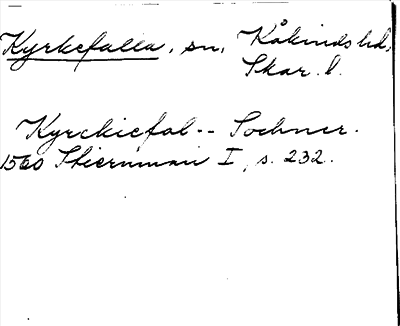 Kyrkefalla, sn, Kåkinds hd,
Skar. l.
Kyrckiefal -- Sochner.
1560 Stiernman I, s. 232.